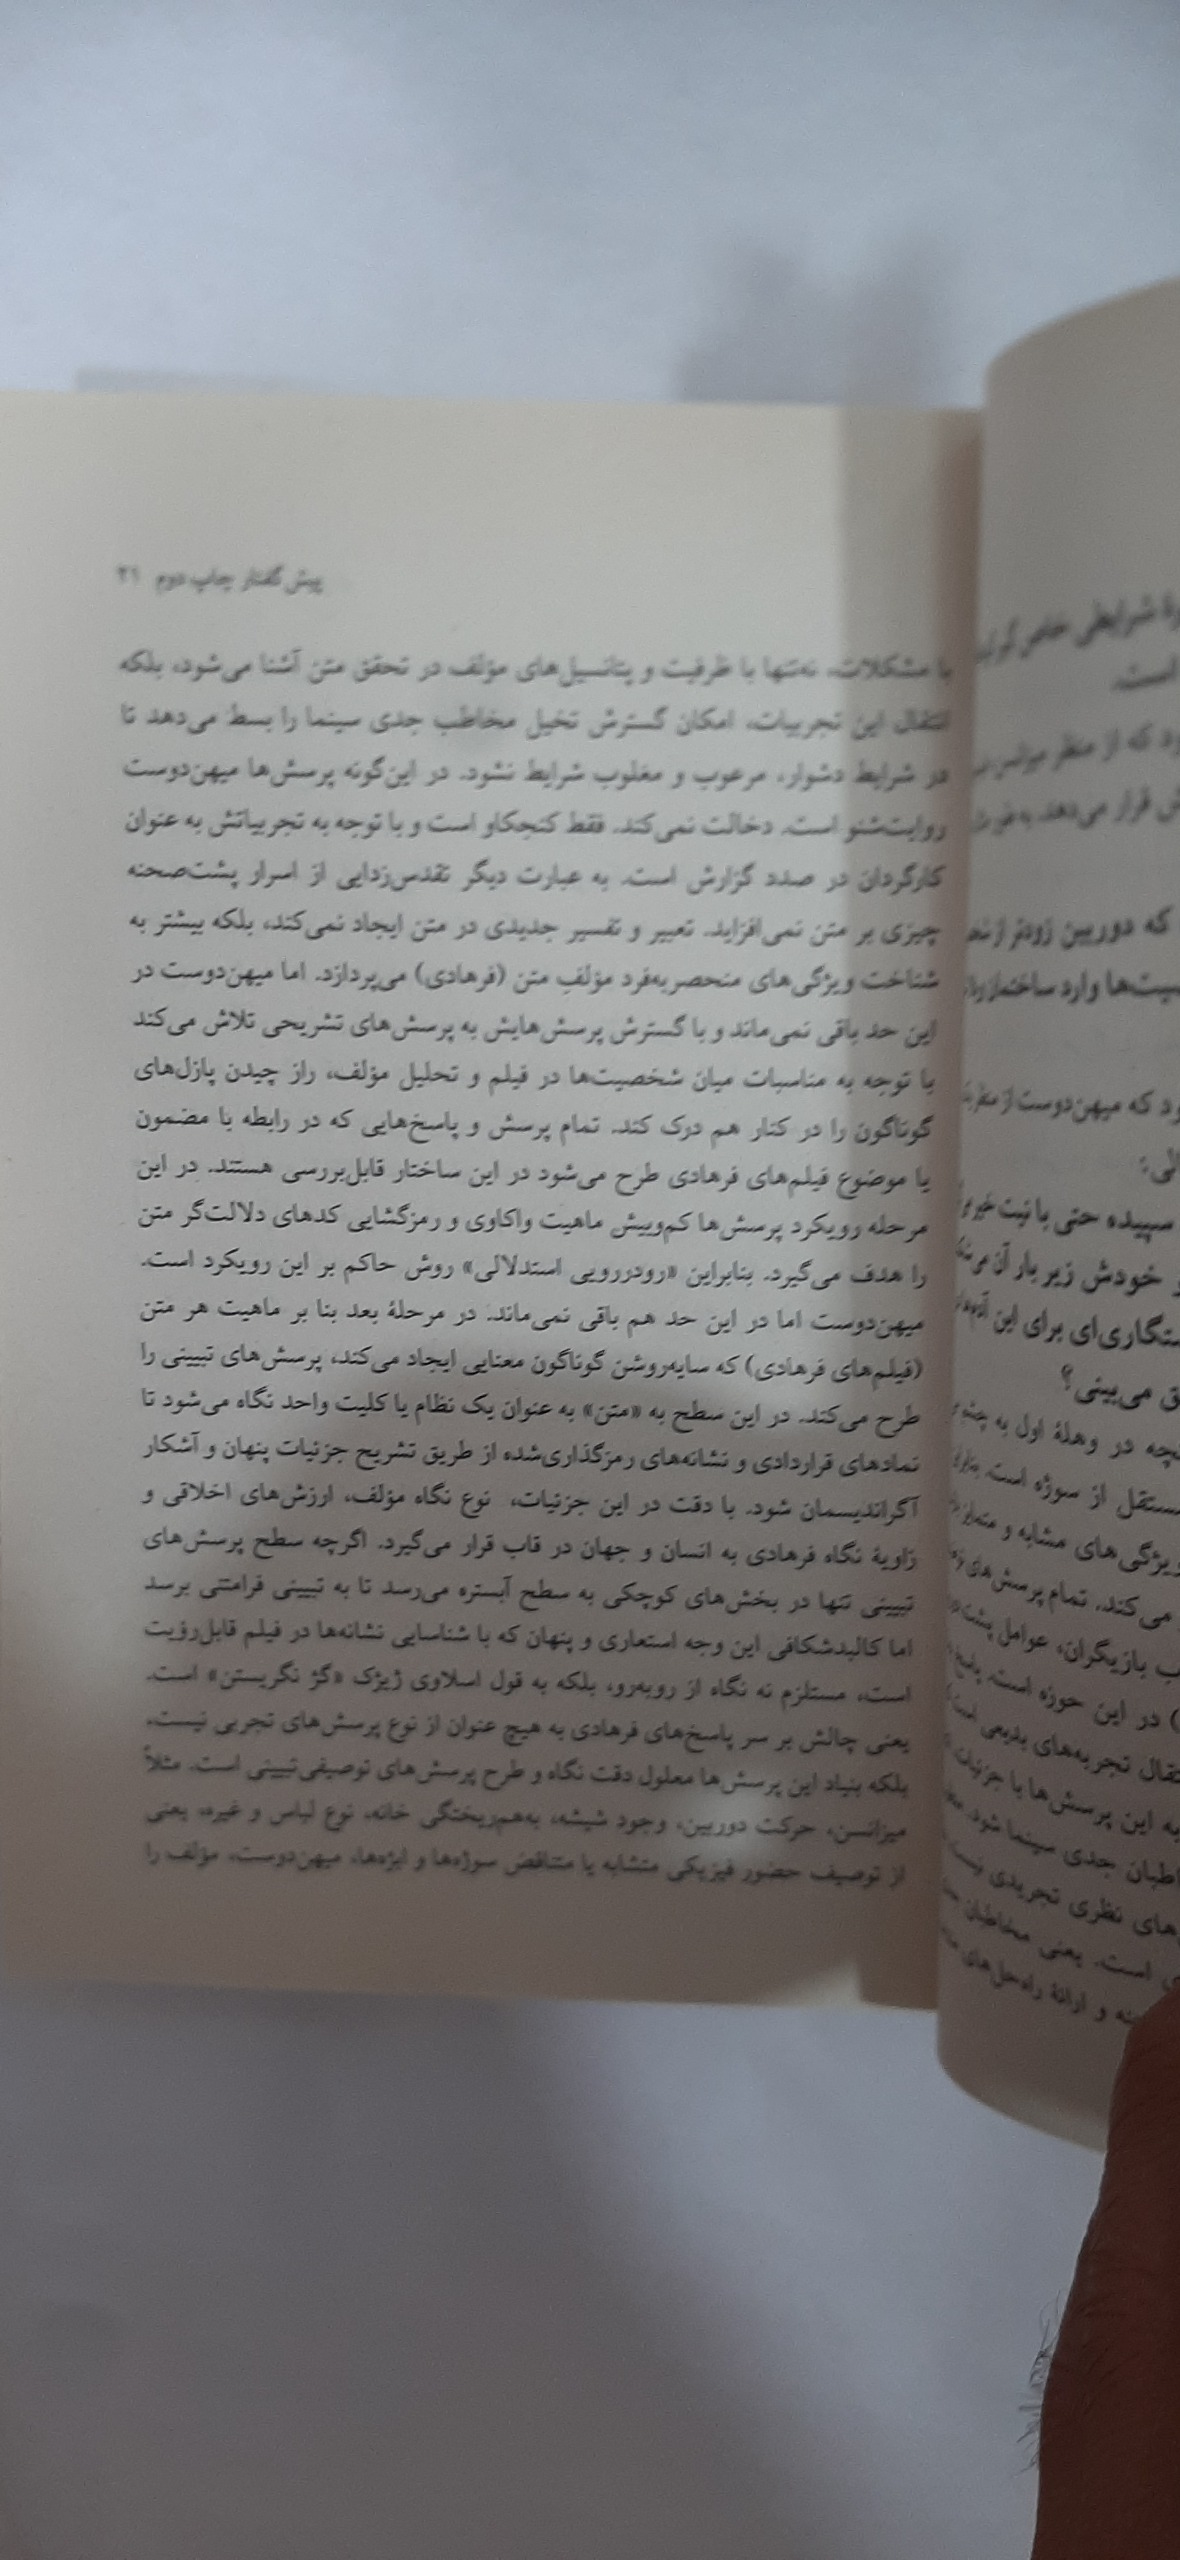 پیش گفتار چاپ دوم ۲۱
با مشکلات، نه‌تنها با ظرفیت و پتانسیل‌های مؤلف در تحقق متن آشنا می‌شود، بلکه
انتقال این تجربیات، امکان گسترش تخیل مخاطب جدی سینما را بسط می‌دهد تا
در شرایط دشوار، مرعوب و مغلوب شرایط نشود. در این‌گونه پرسش‌ها میهن‌دوست
روایت‌شنو است. دخالت نمی‌کند. فقط کنجکاو است و با توجه به تجربیاتش به عنوان
کارگردان در صدد گزارش است. به عبارت دیگر تقدس‌زدایی از اسرار پشت‌صحنه
چیزی بر متن نمی‌افزاید. تعبیر و تفسیر جدیدی در متن ایجاد نمی‌کند، بلکه بیشتر به
شناخت ویژگی‌های منحصربه‌فرد مؤلفِ متن (فرهادی) می‌پردازد. اما میهن‌دوست در
این حد باقی نمی‌ماند و با گسترش پرسش‌هایش به پرسش‌های تشریحی تلاش می‌کند
با توجه به مناسبات میان شخصیت‌ها در فیلم و تحلیل مؤلف، راز چیدن پازل‌های
گوناگون را در کنار هم درک کند. تمام پرسش و پاسخ‌هایی که در رابطه با مضمون
یا موضوع فیلم‌های فرهادی طرح می‌شود در این ساختار قابل‌بررسی هستند. در این
مرحله رویکرد پرسش‌ها کم‌وبیش ماهیت واکاوی و رمزگشایی کدهای دلالت‌گر متن
را هدف می‌گیرد. بنابراین «رودررویی استدلالی» روش حاکم بر این رویکرد است.
میهن‌دوست اما در این حد هم باقی نمی‌ماند. در مرحلهٔ بعد بنا بر ماهیت هر متن
(فیلم‌های فرهادی) که سایه‌روشن گوناگون معنایی ایجاد می‌کند، پرسش‌های تبیینی را
طرح می‌کند. در این سطح به «متن» به عنوان یک نظام یا کلیت واحد نگاه می‌شود تا
نمادهای قراردادی و نشانه‌های رمزگذاری‌شده از طریق تشریح جزئیات پنهان و آشکار
آگراندیسمان شود. با دقت در این جزئیات، نوع نگاه مؤلف، ارزش‌های اخلاقی و
زاویهٔ نگاه فرهادی به انسان و جهان در قاب قرار می‌گیرد. اگرچه سطح پرسش‌های
تبیینی تنها در بخش‌های کوچکی به سطح آبستره می‌رسد تا به تبیینی فرامتنی برسد
اما کالبدشکافی این وجه استعاری و پنهان که با شناسایی نشانه‌ها در فیلم قابل‌رؤیت
است، مستلزم نه نگاه از روبه‌رو، بلکه به قول اسلاوی ژیژک «کژ نگریستن» است.
یعنی چالش بر سر پاسخ‌های فرهادی به هیچ عنوان از نوع پرسش‌های تجربی نیست،
بلکه بنیاد این پرسش‌ها معلول دقت نگاه و طرح پرسش‌های توصیفی‌تبیینی است. مثلاً
میزانسن، حرکت دوربین، وجود شیشه، به‌هم‌ریختگی خانه، نوع لباس و غیره، یعنی
از توصیف حضور فیزیکی متشابه یا متناقض سوژه‌ها و ابژه‌ها، میهن‌دوست، مؤلف را
شرایطی خاص
است.
که از منظر
قرار می‌دهد.
که دوربین زودتر از
وارد ساختمان
که میهن‌دوست از منظر
سپیده حتی با نیت خیر
خودش زیر بار آن
برای این
می‌بینی؟
در وهلهٔ اول به چشم
مستقل از سوژه است.
ویژگی‌های مشابه و
می‌کند. تمام پرسش‌های
بازیگران، عوامل پشت
در این حوزه است.
تجربه‌های بدیعی است
به این پرسش‌ها با جزئیات
جدی سینما شود.
نظری تجریدی
است. یعنی مخاطبان
و ارائهٔ راه‌حل‌های